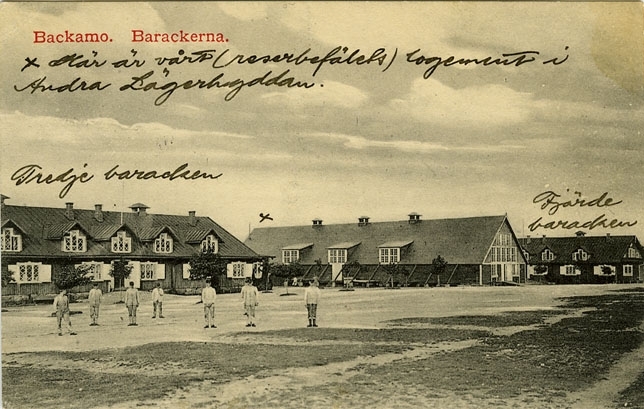 Backamo. Barackerna.
x Här är vårt (reserbefälets) logement i
Andra Lägerhyddan.
Tredje baracken
x
Fjärde
baracken